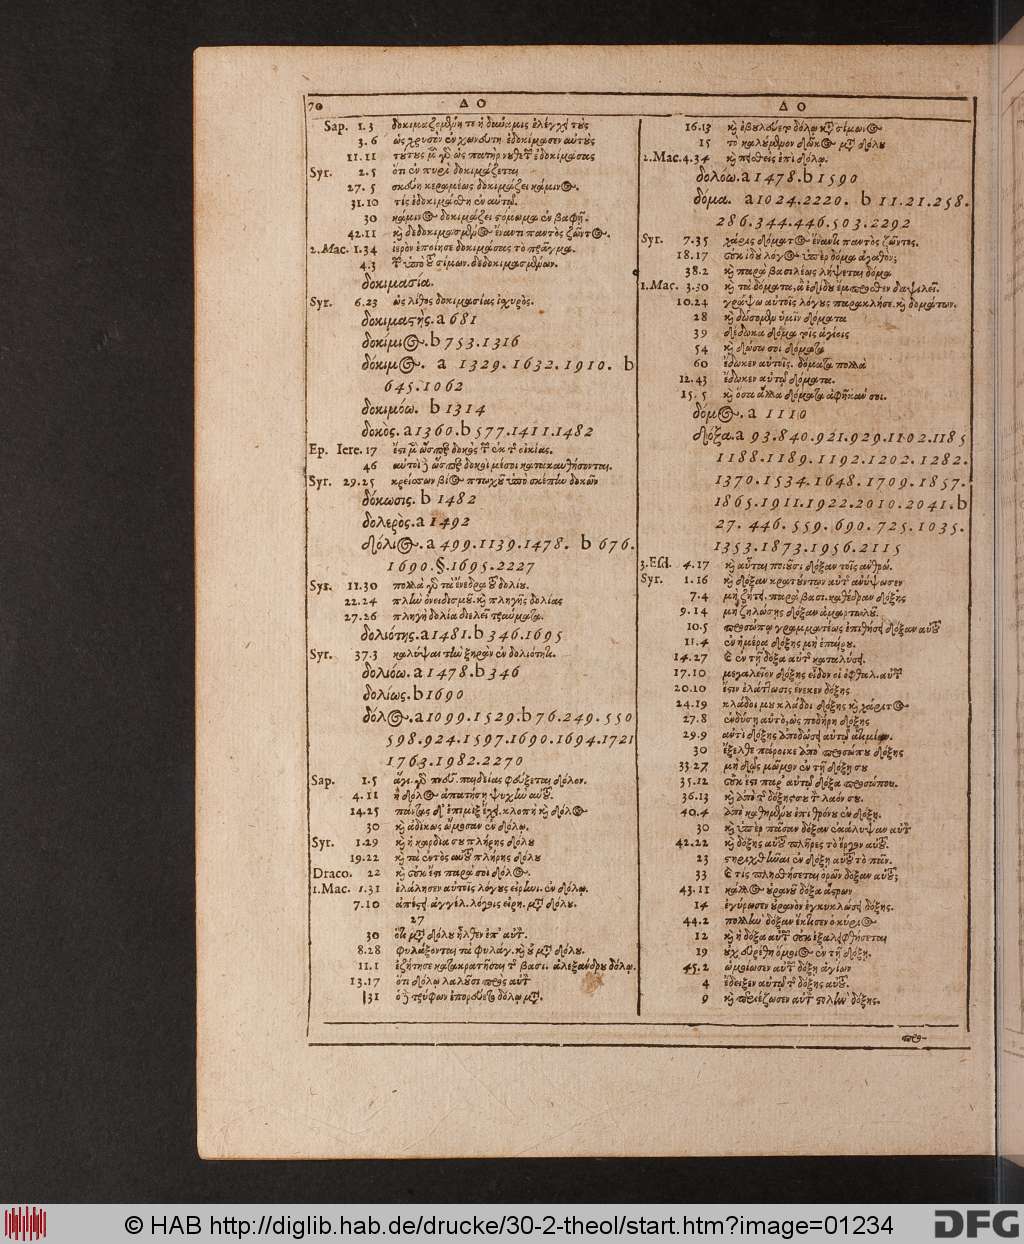 70 ΔΟ ΔΟ
Sap. 1.3 δοκιμαζομένη τε ἡ δύναμις ἐλέγχει τοὺς
3.6 ὡς χρυσὸν ἐν χωνευτη ἐδοκίμασεν αὐτοὺς
11.11 τούτους μ γὸ ὡς πατὴρ νουθετ ἐδοκίμασας
Syr. 2.5 ὅτι ἐν πυρὶ δοκιμάζεται
27.5 σκεύη κεραμέως δοκιμάζει κάμινος.
31.10 τίς ἐδοκιμάσθη ἐν αὐτῷ.
30 κάμινος δοκιμάζει στόμωμα ἐν βαφῇ.
42.11 καὶ δεδοκιμασμένος ἔναντι παντὸς ζῶντος.
2.Mac. 1.34 ἱερὸν ἐποίησε δοκιμάσας τὸ πρᾶγμα.
4.3 ὑπὸ τοῦ σίμων. δεδοκιμασμένων.
δοκιμασία.
Syr. 6.23 ὡς λίθος δοκιμασίας ἰσχυρὸς.
δοκιμαστὴς. a 681
δοκίμιος. b 753.1316
δόκιμος. a 1329.1632.1910. b
645.1062
δοκιμόω. b 1314
δοκὸς. a 1360. b 577.1411.1482
Ep. Iere. 17 ἔστι μ ὥσπερ δοκὸς τ ἐκ τ οἰκίας.
46 αὐτοὶ ὥσπερ δοκοὶ μέσοι κατακαυθήσονται.
Syr. 29.25 κρείσσων βίος πτωχοῦ ὑπὸ σκέπην δοκῶν
δόκωσις. b 1482
δολερὸς. a 1492
δόλιος. a 499.1139.1478. b 676.
1690.§.1695.2227
Syr. 11.30 πολλὰ γὸ τὰ ἔνεδρα τοῦ δολίου.
22.24 πλὴν ὀνειδισμοῦ. καὶ πληγῆς δολίας
27.26 πληγὴ δολία διελεῖ τραύματα.
δολιότης. a 1481. b 346.1695
Syr. 37.3 καλύψαι τὴν ξηρὰν ἐν δολιότητι.
δολιόω. a 1478. b 346
δολίως. b 1690
δόλος. a 1099.1529. b 76.249.550
598.924.1597.1690.1694.1721
1763.1982.2270
Sap. 1.5 ἅγι. γὸ πνεῦ. παιδείας φεύξεται δόλον.
4.11 ἢ δόλος ἀπατήσῃ ψυχὴν αὐτοῦ.
14.25 πάντας δ' ἐπιμιξ ἔχει. κλοπὴ καὶ δόλος
30 καὶ ἀδίκως ὤμοσαν ἐν δόλῳ.
Syr. 1.29 καὶ ἡ καρδία σου πλήρης δόλου
19.22 καὶ τὰ ἐντὸς αὐτοῦ πλήρης δόλου
Draco. 22 καὶ οὐκ ἔστι παρά σοι δόλος.
1.Mac. 1.31 ἐλάλησεν αὐτοῖς λόγους εἰρηνι. ἐν δόλῳ.
7.10 ἀπέστ. ἀγγέλ. λόγοις εἰρη. μτ δόλου.
27
30 ὅτι μτ δόλου ἦλθεν ἐπ' αὐτ.
8.28 φυλάξονται τὰ φυλάγ. καὶ οὐ μτ δόλου.
11.1 ἐζήτησε κατακρατῆσαι τ βασι. ἀλεξάνδρου δόλῳ.
13.17 ὅτι δόλῳ λαλοῦσι πρὸς αὐτ
31 ὁ τρύφων ἐπορεύετο δόλῳ μτ.
16.13 καὶ ἐβουλεύετο δόλῳ κτ σίμωνος
15 τὸ καλούμενον δὼκ μτ δόλου
2.Mac. 4.34 καὶ πεισθεὶς ἐπὶ δόλῳ.
δολόω. a 1478. b 1590
δόμα. a 1024.2220. b 11.21.258.
286.344.446.503.2292
Syr. 7.35 χάρις δόματος ἔναντι παντὸς ζῶντος.
18.17 οὐκ ἰδοὺ λόγος ὑπὲρ δόμα ἀγαθὸν;
38.2 καὶ παρὰ βασιλέως λήψεται δόμα
1.Mac. 3.30 καὶ τὰ δόματα, ἃ ἐδίδου ἔμπροσθεν δαψιλεῖ.
10.24 γράψω αὐτοῖς λόγους παρακλήσε. καὶ δομάτων.
28 καὶ δώσομεν ὑμῖν δόματα
39 δέδωκα δόμα τοῖς ἁγίοις
54 καὶ δώσω σοι δόματα
60 ἔδωκεν αὐτοῖς. δόματα πολλὰ
12.43 ἔδωκεν αὐτῷ δόματα.
15.5 καὶ ὅσα ἄλλα δόματα ἀφῆκάν σοι.
δόμος. a 1110
δόξα. a 93.840.921.929.1102.1185
1188.1189.1192.1202.1282.
1370.1534.1648.1709.1857.
1865.1911.1922.2010.2041. b
27.446.559.690.725.1035.
1353.1873.1956.2115
3.Esd. 4.17 καὶ αὗται ποιοῦσι δόξαν τοῖς ἀνθρώ.
Syr. 1.16 καὶ δόξαν κρατούντων αὐτ ἀνύψωσεν
7.4 μὴ ζήτει. παρὰ βασι. καθέδραν δόξης
9.14 μὴ ζηλώσῃς δόξαν ἁμαρτωλοῦ.
10.5 προσώπῳ γραμματέως ἐπιθήσει δόξαν αὐτοῦ
11.4 ἐν ἡμέρᾳ δόξης μὴ ἐπαίρου.
14.27 ἐν τῇ δόξᾳ αὐτ καταλύσει.
17.10 μεγαλεῖον δόξης εἶδον οἱ ὀφθαλ. αὐτ
20.10 ἔστιν ἐλάττωσις ἕνεκεν δόξης
24.19 κλάδοι μου κλάδοι δόξης καὶ χάριτος
27.8 ἐνδύσῃ αὐτὸ, ὡς ποδήρη δόξης
29.9 ἀντὶ δόξης ἀποδώσει αὐτῷ ἀτιμίαν.
30 ἔξελθε πάροικε ἀπὸ προσώπου δόξης
33.27 μὴ δῷς μῶμον ἐν τῇ δόξῃ σου
35.12 οὐκ ἔστι παρ' αὐτῷ δόξα προσώπου.
36.13 καὶ ἀπὸ τ δόξης σου τ λαόν σου.
40.4 ἀπὸ καθημένου ἐπὶ θρόνου ἐν δόξῃ.
30 καὶ ὑπὲρ πᾶσαν δόξαν ἐκάλυψαν αὐτ
42.22 καὶ δόξης αὐτοῦ πλῆρες τὸ ἔργον αὐτοῦ.
23 στηριχθῆναι ἐν δόξῃ αὐτοῦ τὸ πᾶν.
33 τίς πλησθήσεται ὁρῶν δόξαν αὐτοῦ;
43.11 κάλλος οὐρανοῦ δόξα ἄστρων
14 ἐγύρωσεν οὐρανὸν ἐγκυκλώσει δόξης.
44.2 πολλὴν δόξαν ἔκτισεν ὁ κύριος
12 καὶ ἡ δόξα αὐτ οὐκ ἐξαλειφθήσεται
19 οὐχ εὑρέθη ὅμοιος ἐν τῇ δόξῃ.
45.2 ὡμοίωσεν αὐτ δόξῃ ἁγίων
4 ἔδειξεν αὐτῷ τ δόξης αὐτοῦ.
9 καὶ περιέζωσεν αὐτ στολὴν δόξης.
προ-
© HAB http://diglib.hab.de/drucke/30-2-theol/start.htm?image=01234
DFG